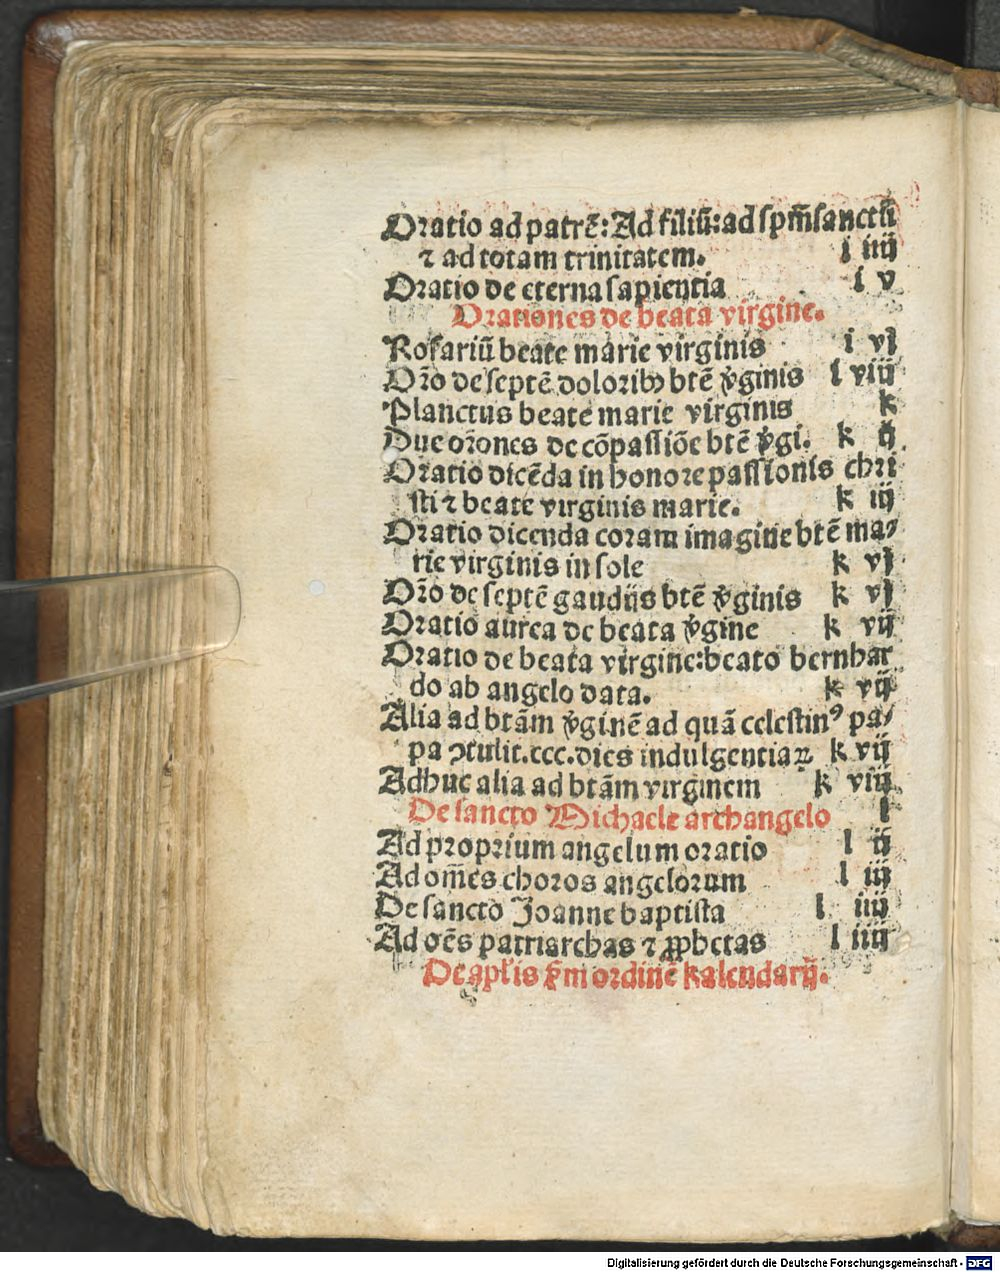 Oratio ad patrē: Ad filiū: ad spm̄sanctū
⁊ ad totam trinitatem. i iiij
Oratio de eterna sapientia i v
Orationes de beata virgine.
Rosariū beate marie virginis i vj
Or̄o de septē doloribꝫ btē v̄ginis i viij
Planctus beate marie virginis k
Due or̄ones de cōpassiōe btē v̄gi. k ij
Oratio dicēda in honore passionis chri
sti ⁊ beate virginis marie. k iij
Oratio dicenda coram imagine btē ma⸗
rie virginis in sole k vj
Or̄o de septē gaudijs btē v̄ginis k vj
Oratio aurea de beata v̄gine k vij
Oratio de beata virgine: beato bernhar
do ab angelo data. k vij
Alia ad btām v̄ginē ad quā celestinꝰ pa⸗
pa ↄtulit. ccc. dies indulgentiaꝝ k vij
Adhuc alia ad btām virginem k viij
De sancto Michaele archangelo l
Ad proprium angelum oratio l ij
Ad om̄es choros angelorum l iij
De sancto Joanne baptista l iiij
Ad oēs patriarchas ⁊ ꝓphetas l iiij
De apl̄is s̄m ordinē kalendarij.
Digitalisierung gefördert durch die Deutsche Forschungsgemeinschaft - DFG